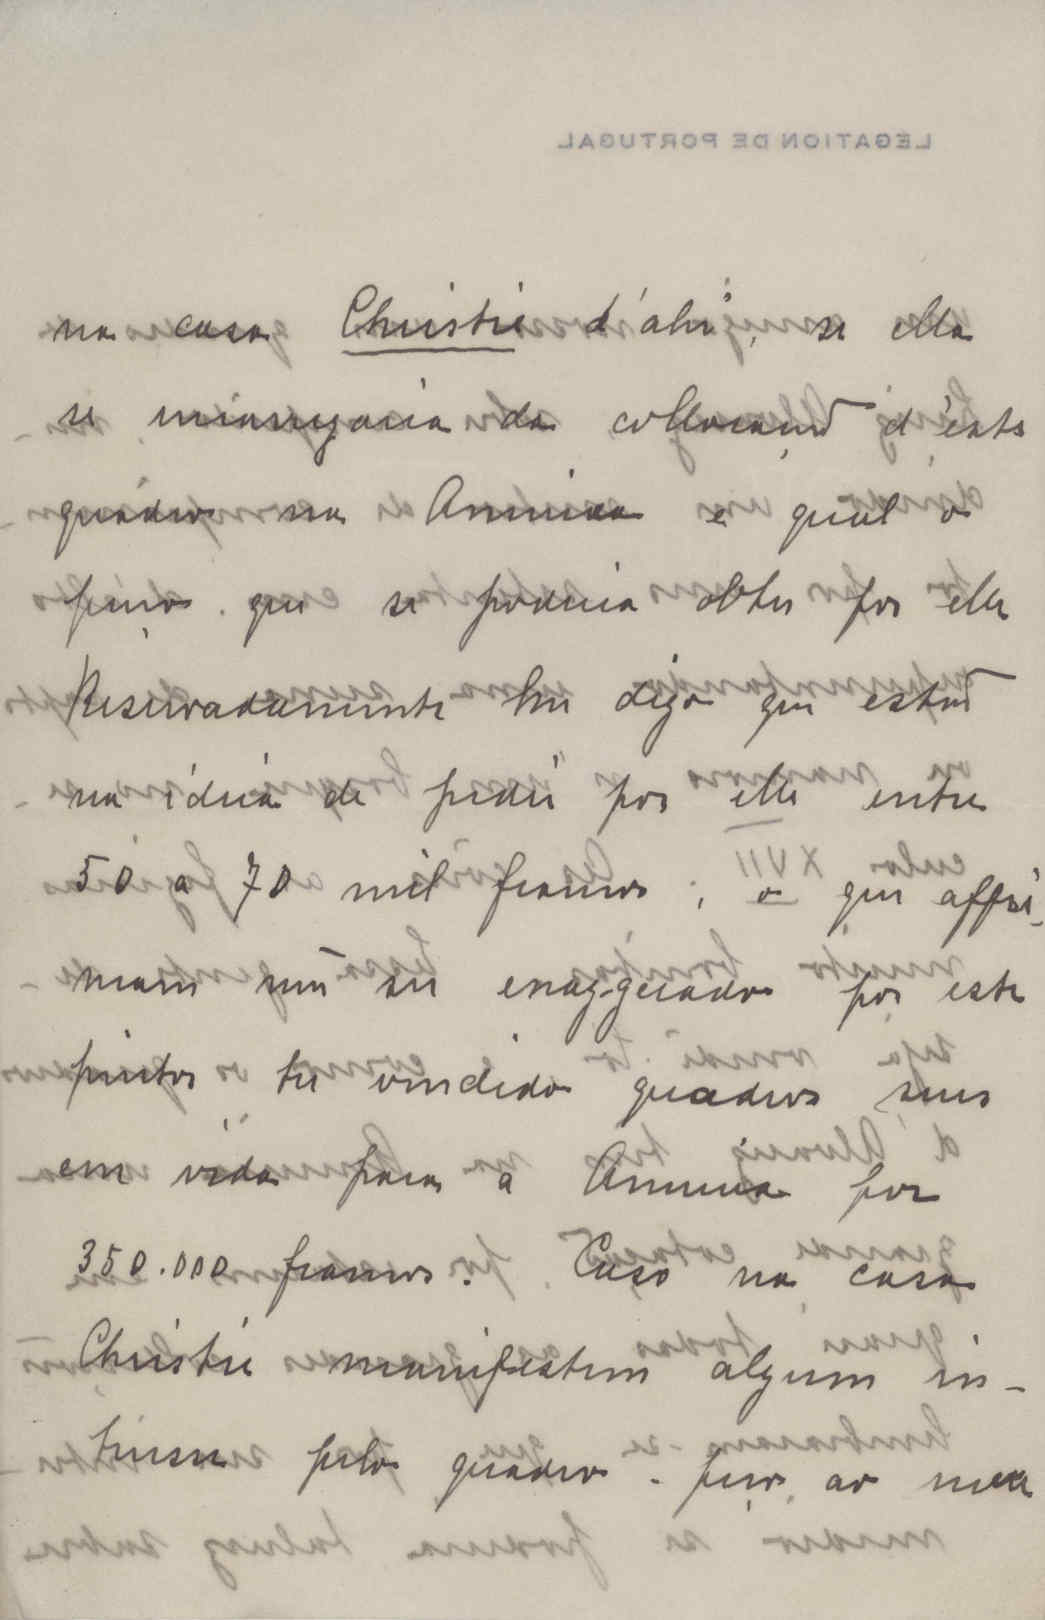 LEGATION DE PORTUGAL
na casa Christie d'ahi, se ella
se encarregaria da collocação d'este
quadro na America e qual o
preço que se poderia obter por elle
Reservadamente lhe digo que estão
na idéia de pedir por elle entre
50 a 70 mil francos; o que affir-
mam não ser exaggerado por este
pintor ter vendido quadros seus
em vida para a America por
350.000 francos. Caso na casa
Christie manifestem algum in-
teresse pelo quadro, peço ao meu